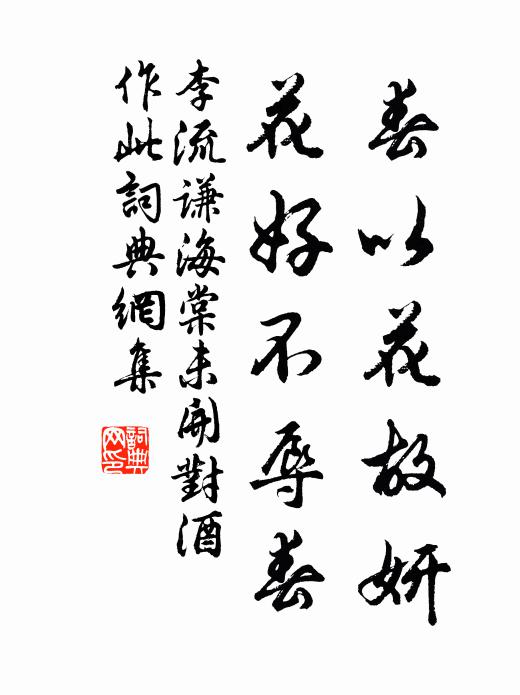 春以花故妍
花好不辱春
李流谦海棠未開對酒
作此詞典網集
詞典网印